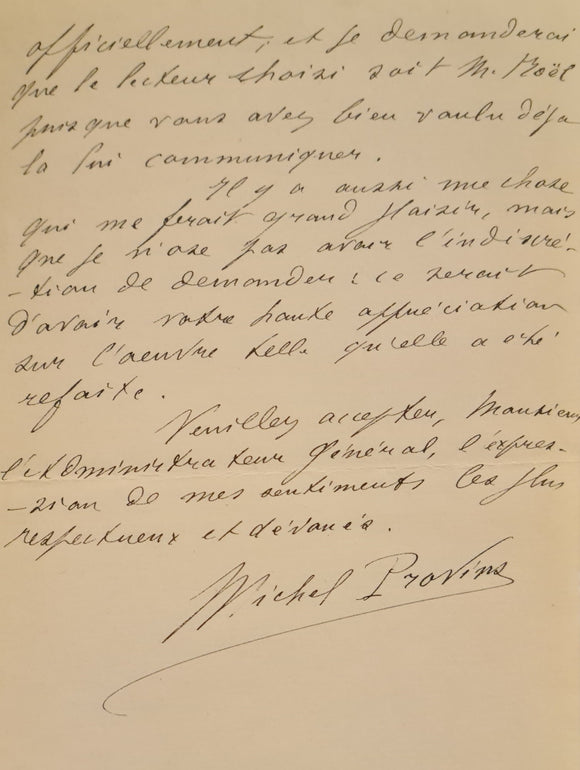 officiellement, et je demanderai
que le lecteur choisi soit M. Noël
puisque vous avez bien voulu déjà
la lui communiquer.
Il y a aussi une chose
qui me ferait grand plaisir, mais
que je n'ose pas avoir l'indiscré-
-tion de demander : ce serait
d'avoir votre haute appréciation
sur l'œuvre telle qu'elle a été
refaite.
Veuillez accepter, Monsieur
l'Administrateur Général, l'expres-
-sion de mes sentiments les plus
respectueux et dévoués.
Michel Provins